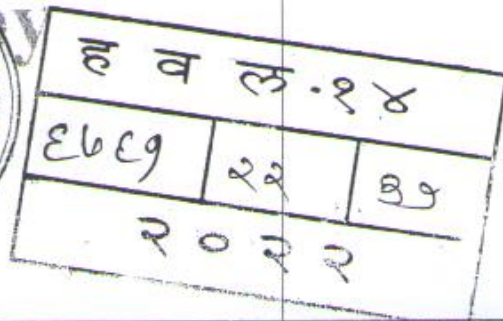 ह व ल.१४
६७६१ २२
२०२२